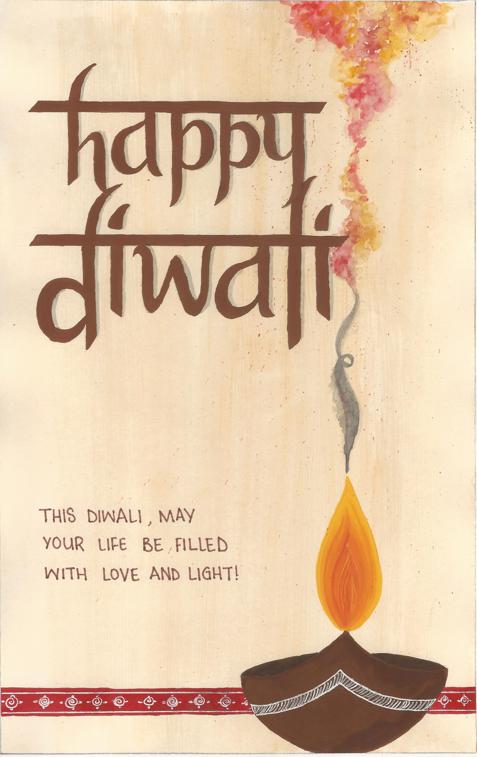 happy
diwali
THIS DIWALI, MAY
YOUR LIFE BE FILLED
WITH LOVE AND LIGHT!